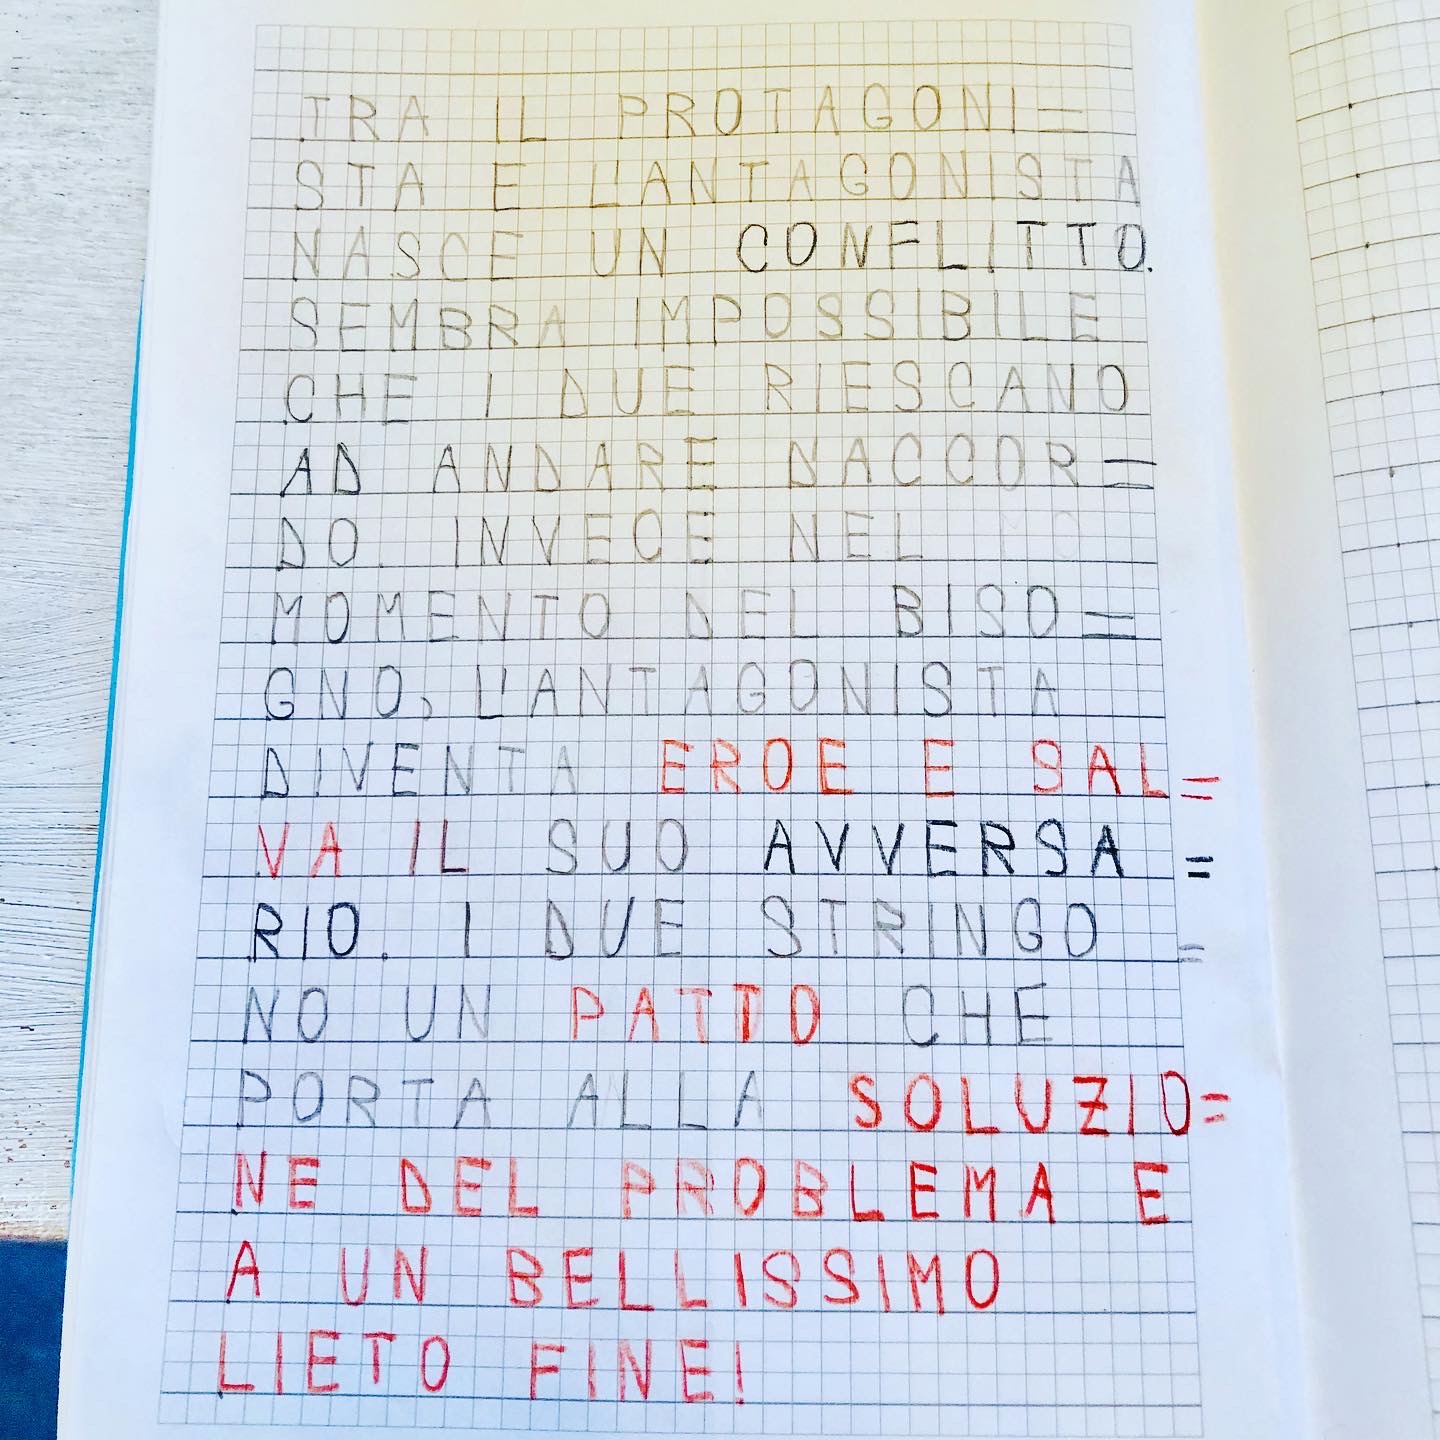 TRA IL PROTAGONI=
STA E L'ANTAGONISTA
NASCE UN CONFLITTO.
SEMBRA IMPOSSIBILE
CHE I DUE RIESCANO
AD ANDARE DACCOR=
DO. INVECE NEL
MOMENTO DEL BISO=
GNO, L'ANTAGONISTA
DIVENTA EROE E SAL=
VA IL SUO AVVERSA=
RIO. I DUE STRINGO=
NO UN PATTO CHE
PORTA ALLA SOLUZIO=
NE DEL PROBLEMA E
A UN BELLISSIMO
LIETO FINE!